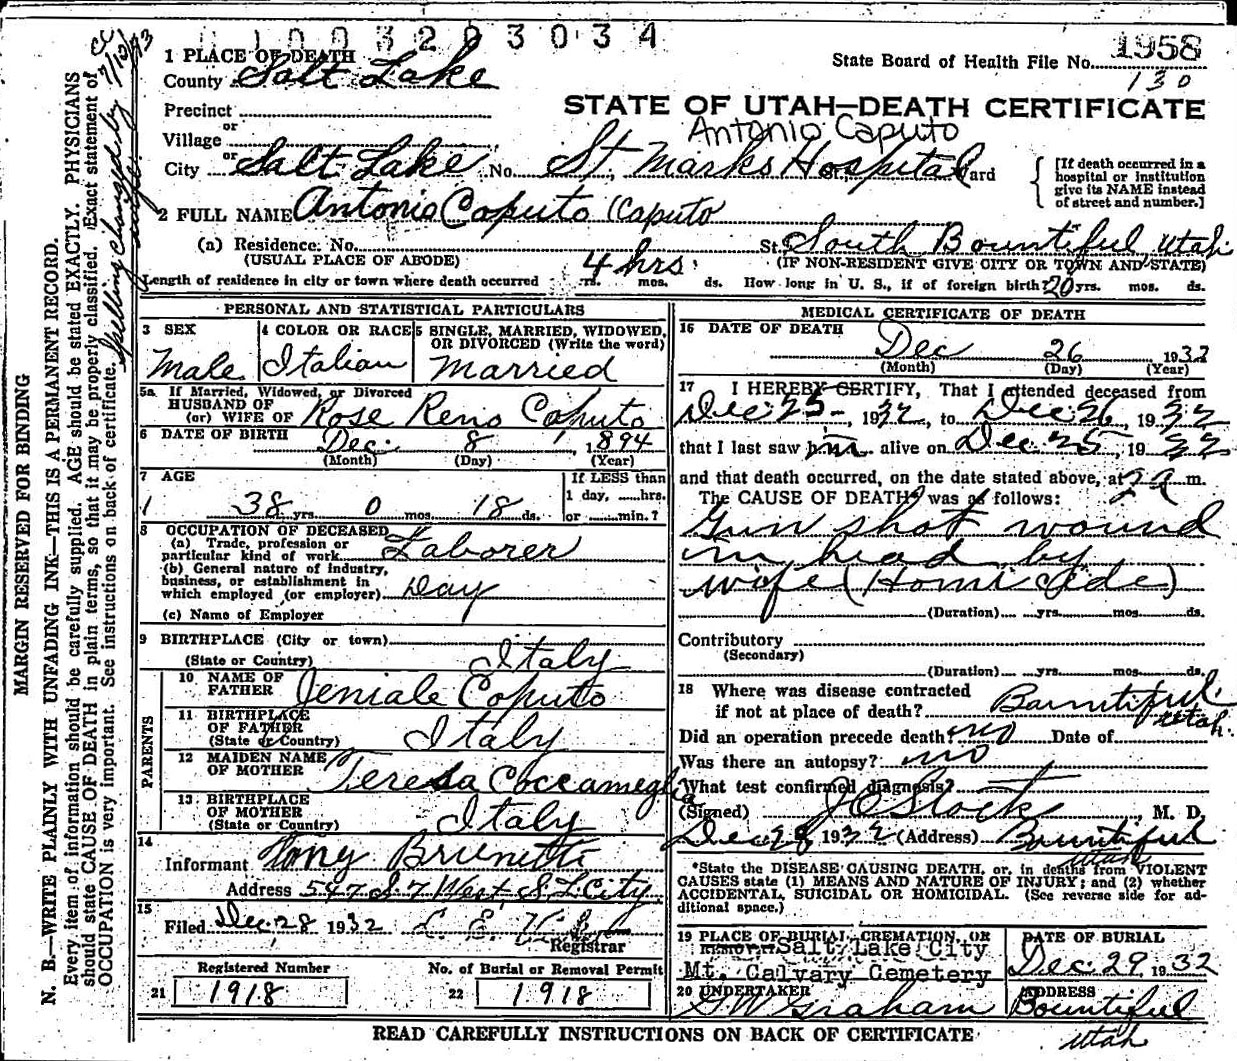 1003203034
State Board of Health File No. 1958
130
1 PLACE OF DEATH
County Salt Lake
STATE OF UTAH—DEATH CERTIFICATE
Antonio Caputo
Precinct
or
Village
or
City Salt Lake No. St. Marks Hospital Ward
[If death occurred in a
hospital or institution
give its NAME instead
of street and number.]
2 FULL NAME Antonio Coputo (Caputo
(a) Residence. No. St. South Bountiful, Utah.
(USUAL PLACE OF ABODE) (IF NON-RESIDENT GIVE CITY OR TOWN AND STATE)
Length of residence in city or town where death occurred 4 hrs. yrs. mos. ds. How long in U. S., if of foreign birth? 20 yrs. mos. ds.
PERSONAL AND STATISTICAL PARTICULARS
3 SEX
Male
4 COLOR OR RACE
Italian
5 SINGLE, MARRIED, WIDOWED,
OR DIVORCED (Write the word)
Married
5a If Married, Widowed, or Divorced
HUSBAND OF
(or) WIFE OF Rose Reno Coputo
6 DATE OF BIRTH Dec. 8, 1894
(Month) (Day) (Year)
7 AGE
If LESS than
1 day, hrs.
or min.?
38 yrs. 0 mos. 18 ds.
8 OCCUPATION OF DECEASED
(a) Trade, profession or
particular kind of work Laborer
(b) General nature of industry,
business, or establishment in
which employed (or employer) Day
(c) Name of Employer
9 BIRTHPLACE (City or town)
(State or Country) Italy
PARENTS
10 NAME OF
FATHER Jeniale Coputo
11 BIRTHPLACE
OF FATHER
(State or Country) Italy
12 MAIDEN NAME
OF MOTHER Teresa Coccameglia
13 BIRTHPLACE
OF MOTHER
(State or Country) Italy
14
Informant Tony Brunetti
Address 547 S. 7 West, S. L. City
15
Filed Dec 28 1932 L. E.
Registrar
Registered Number
21 1918
No. of Burial or Removal Permit
22 1918
MEDICAL CERTIFICATE OF DEATH
16 DATE OF DEATH
Dec 26 1932
(Month) (Day) (Year)
17 I HEREBY CERTIFY, That I attended deceased from
Dec. 25 - 1932, to Dec. 26, 1932
that I last saw him alive on Dec. 25, 1932
and that death occurred, on the date stated above, at 2 a m.
The CAUSE OF DEATH* was as follows:
Gun shot wound
in head by
wife (Homicide)
(Duration) yrs. mos. ds.
Contributory
(Secondary)
(Duration) yrs. mos. ds.
18 Where was disease contracted
if not at place of death? Bountiful Utah.
Did an operation precede death? no Date of
Was there an autopsy? no
What test confirmed diagnosis?
(Signed) J C Stocks, M. D.
Dec 28 1932 (Address) Bountiful
Utah
*State the DISEASE CAUSING DEATH, or, in deaths from VIOLENT
CAUSES state (1) MEANS AND NATURE OF INJURY; and (2) whether
ACCIDENTAL, SUICIDAL OR HOMICIDAL. (See reverse side for ad-
ditional space.)
19 PLACE OF BURIAL, CREMATION, OR
REMOVAL Salt Lake City
Mt. Calvary Cemetery
DATE OF BURIAL
Dec. 29, 1932
20 UNDERTAKER
G W Graham
ADDRESS
Bountiful
Utah
READ CAREFULLY INSTRUCTIONS ON BACK OF CERTIFICATE
MARGIN RESERVED FOR BINDING
N. B.—WRITE PLAINLY WITH UNFADING INK—THIS IS A PERMANENT RECORD.
Every item of information should be carefully supplied. AGE should be stated EXACTLY. PHYSICIANS
should state CAUSE OF DEATH in plain terms, so that it may be properly classified. Exact statement of
OCCUPATION is very important. See instructions on back of certificate.
Spelling changed by
wife
cc 7/13/73